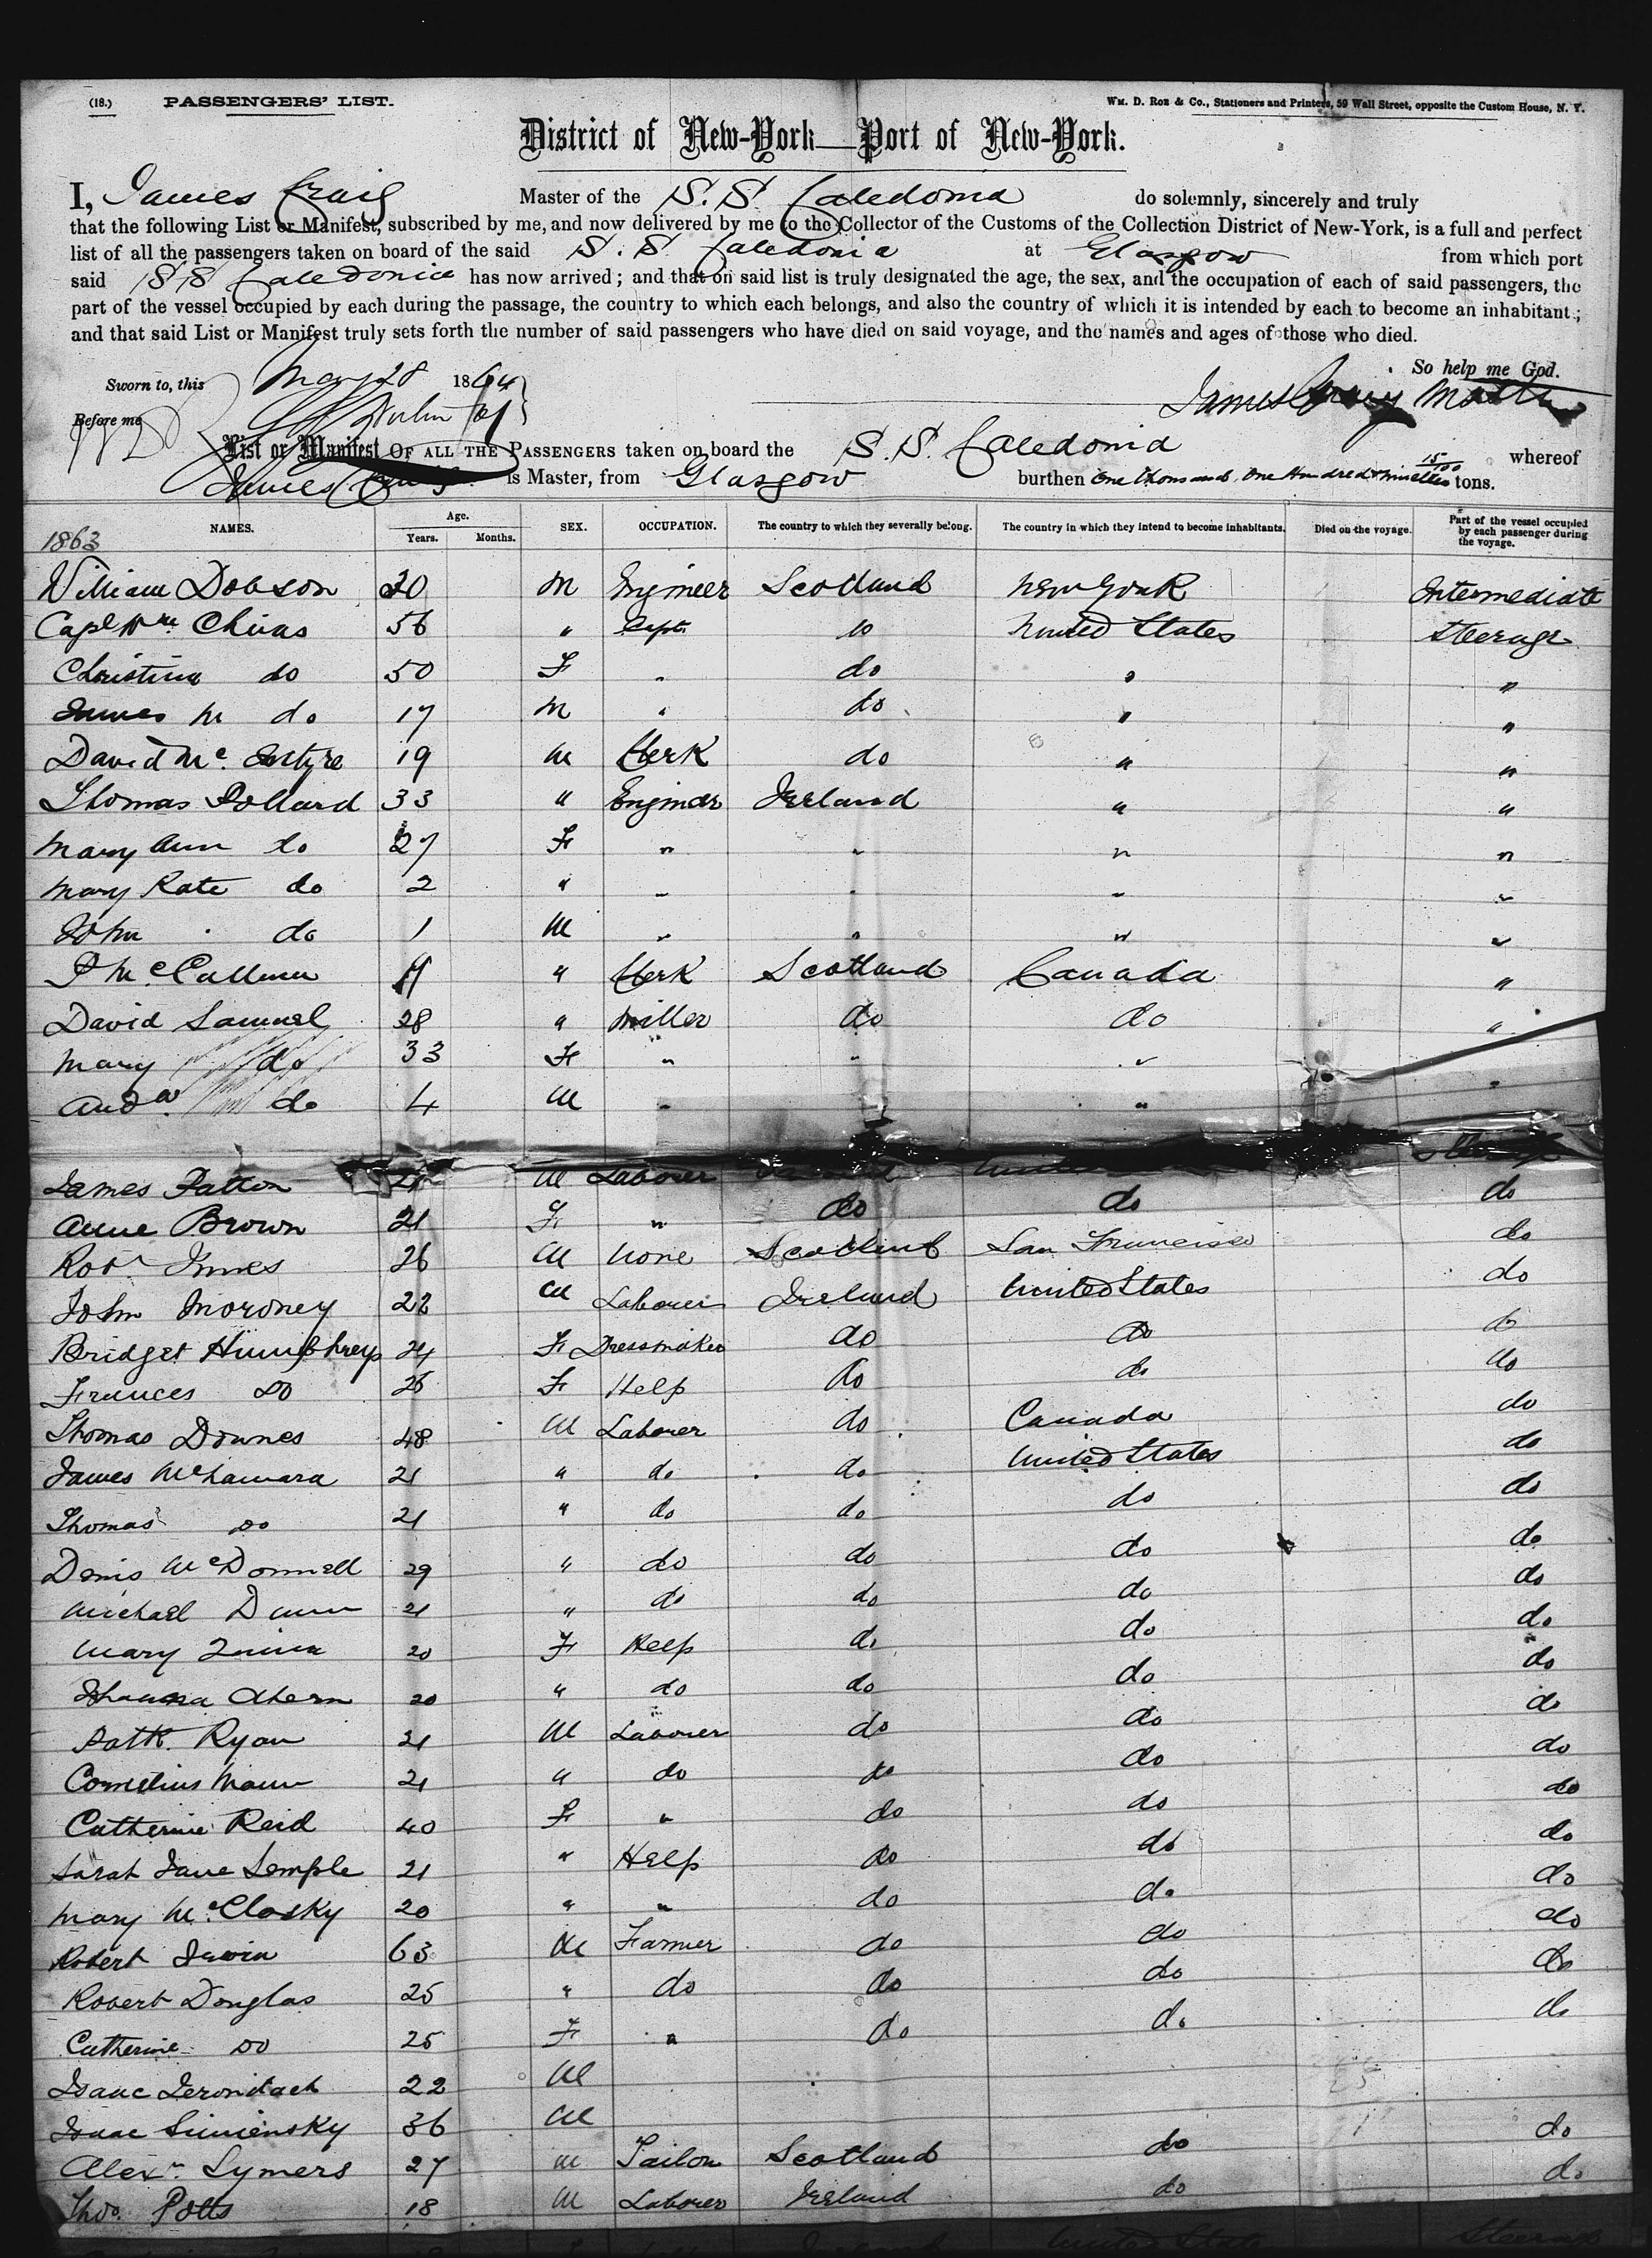 (18.) PASSENGERS' LIST. Wm. D. Roe & Co., Stationers and Printers, 59 Wall Street, opposite the Custom House, N. Y.
District of New-York—Port of New-York.
I, James Craig Master of the S.S. Caledonia do solemnly, sincerely and truly
that the following List or Manifest, subscribed by me, and now delivered by me to the Collector of the Customs of the Collection District of New-York, is a full and perfect
list of all the passengers taken on board of the said S.S. Caledonia at Glasgow from which port
said SS Caledonia has now arrived; and that on said list is truly designated the age, the sex, and the occupation of each of said passengers, the
part of the vessel occupied by each during the passage, the country to which each belongs, and also the country of which it is intended by each to become an inhabitant;
and that said List or Manifest truly sets forth the number of said passengers who have died on said voyage, and the names and ages of those who died.
So help me God.
Sworn to, this May 28 1864
James Craig Master
Before me
List or Manifest OF ALL THE PASSENGERS taken on board the S.S. Caledonia whereof
James Craig is Master, from Glasgow burthen One thousand, One Hundred & nineteen 15/100 tons.
NAMES. Age. Years. Months. SEX. OCCUPATION. The country to which they severally belong. The country in which they intend to become inhabitants. Died on the voyage. Part of the vessel occupied by each passenger during the voyage.
1863
William Dobson 20 M Engineer Scotland New York Intermediate
Capt Wm Chivas 56 " Capt. do United States Steerage
Christina do 50 F " do " "
James M do 17 M " do " "
David Mc Intyre 19 M Clerk do " "
Thomas Pollard 33 " Engineer Ireland " "
Mary Ann do 27 F " " " "
Mary Kate do 2 " " " " "
John do 1 M " " " "
P McCallum " Clerk Scotland Canada "
David Samuel 28 " Miller do do "
Mary do 33 F " " "
Andw. do 4 M " " "
James Patton 21 M Labourer Steerage
Anne Brown 21 F " do do do
Robt Innes 26 M None Scotland San Francisco do
John Moroney 22 M Labourer Ireland United States do
Bridget Humphreys 24 F Dressmaker do do do
Frances do 26 F Help do do do
Thomas Downes 48 M Labourer do Canada do
James McNamara 21 " do do United States do
Thomas do 21 " do do do do
Denis McDonnell 29 " do do do do
Michael Dunn 21 " do do do do
Mary Quinn 20 F Help do do do
Johanna Ahern 20 " do do do do
Patk. Ryan 21 M Labourer do do do
Cornelius Mann 21 " do do do do
Catherine Reid 40 F " do do do
Sarah Jane Semple 21 " Help do do do
Mary McClosky 20 " " do do do
Robert Irwin 63 M Farmer do do do
Robert Douglas 25 " do do do do
Catherine do 25 F " do do do
Isaac 22 M
Isaac Simiensky 36 M
Alexr. Symers 27 M Tailor Scotland do do
Thos. Potts 18 M Labourer Ireland do do
United States Steerage